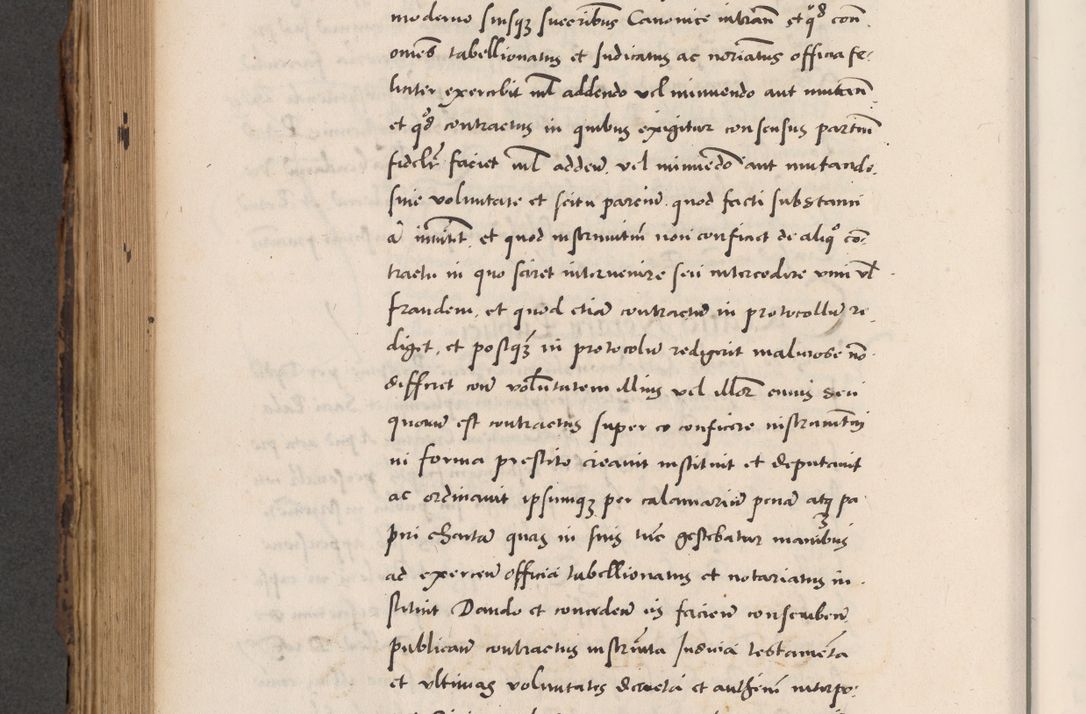 moderno suisq3 successoribus Canonice intran̄ et q̄d con̄
omēs tabellionatus et Judicatus ac notariatus officia fe-
liciter exercebit nīl addendo vel minuendo aut mutan̄
et q̄d contractus in quibus exigitur consensus partiū
fidelr̄ faciet nīl adden̄ vel minuendo aut mutando
sine voluntate et scitu partium quod facti substanti
ā inmutet et quod instrumentum non conficiet de aliq° cō-
tractu in quo sciret intervenire seu intercedere vim vl̄
fraudem, et quod etiā contractū in protocollū re-
diget, et postq3 in protocolū redigerit maliciose nō
differet cont̄ voluntatem illius vel illor̄ cuius seu
quorum est contractus super eo conficere instrumentum
in forma prestito creavit instituit et deputavit
ac ordinavit ipsumq3 per calamariū penā atq3 pa
piri Chartā quas in suis tūc gestabatur manibus
ad exercen̄ officiā tabellionatus et notariatus in-
stituit Dando et conceden̄ iis facien̄ conscriben̄
publican̄ contractus instrumēta Judicia testamēta
et ultimas voluntates decretā et autheīn interpo-